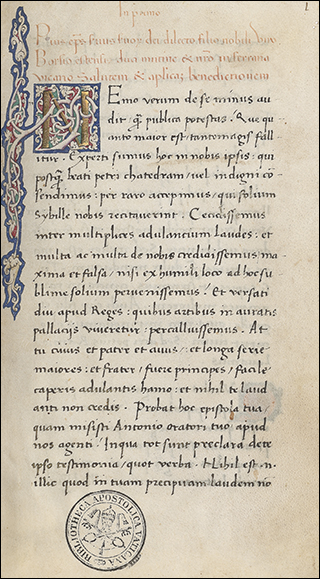 In primo
1
Pius eps seruus seruor dei dilecto filio nobili Viro
Borsio Estensi duci mutine & nro in ferraria
vicario Salutem & aplicā benedictionem
NEmo uerum de se minus au
dit q̄ publica potestas . Que qu
anto maior est : tanto magis fall
itur . Experti sumus hoc in nobis ipsis : qui
postq̄ beati petri chatedram / uel indigni cō-
sendimus : per raro accepimus / qui folium
Sybille nobis recitauerint . Cecidissemus
inter multiplices adulancium Laudes : et
multa ac multa de nobis credidissemus ma-
xima et falsa / nisi ex humili loco ad hoc su
blime solium peruenissemus . Et uersati
diu apud Reges : quibus artibus in auratis
pallacijs uiueretur : percalluissemus . At
tu cuius et pater et auus / et longa serie
maiores : et frater / fuere principes / facile
caperis adulantis hamo : et nihil te laud
anti non credis . Probat hoc epistola tua /
quam misisti Antonio oratori tuo apud
nos agenti . In qua tot sunt preclara de te
ipso testimonia / quot uerba . Nihil est n̄
illic quod in tuam precipuam laudem nō
BIBLIOTHECA APOSTOLICA VATICANA